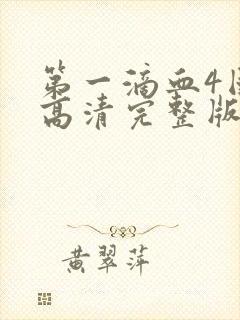 第一滴血4国
高清完整版
黄翠萍